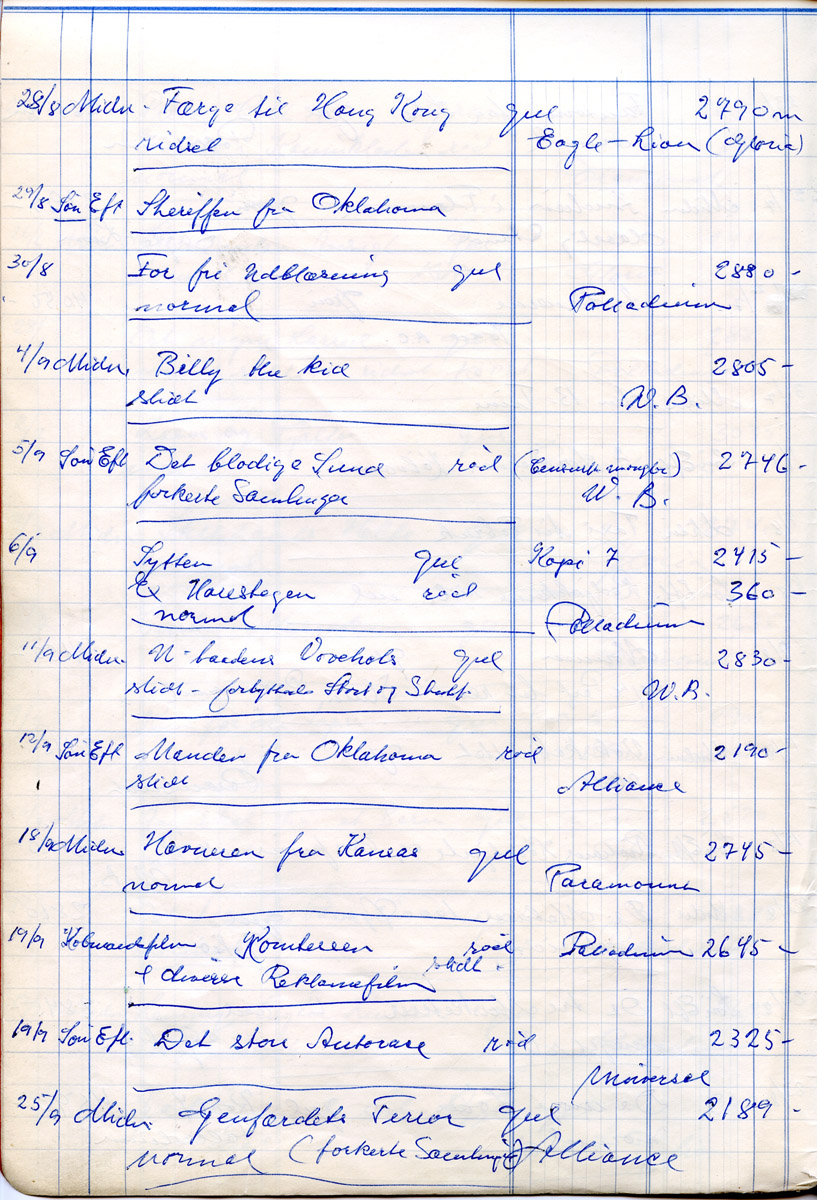 28/8 Midn. Færge til Hong Kong gul 2790 m
slidt Eagle-Lion (Gloria)
29/8 Søn Eft Sheriffen fra Oklahoma
30/8 For fri Udblæsning gul 2880 -
normal Palladium
4/9 Midn. Billy the Kid 2805 -
slidt W.B.
5/9 Søn Eft Det blodige Sund rød (Censurk mangler) 2746 -
forkerte Samlinger W.B.
6/9 Sytten gul Kopi 7 2415 -
Ex Hareskogen rød 360 -
normal Palladium
11/9 Midn. U-baadens Vovehals gul 2830 -
slidt - forbyttede Start og Slut W.B.
12/9 Søn Eft Manden fra Oklahoma rød 2190 -
slidt Alliance
18/9 Midn. Hævneren fra Kansas gul 2745 -
normal Paramount
19/9 Købmandsfilm Komtessen rød Palladium 2645 -
+ diverse Reklamefilm slidt.
19/9 Søn Eft. Det store Autorace rød 2325 -
Universal
25/9 Midn. Genfærdets Terror gul 2189 -
normal (forkerte Samlinger) Alliance